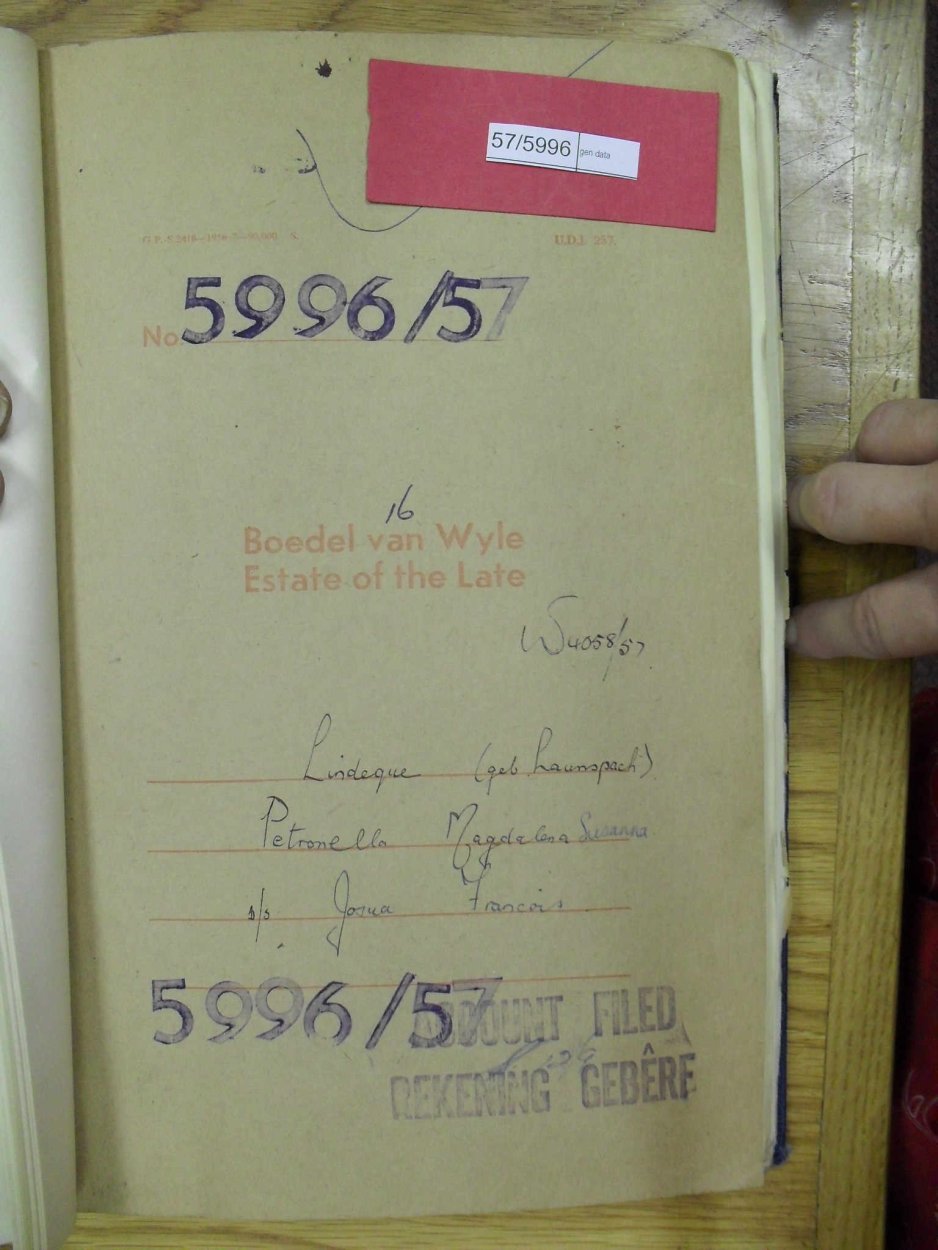 57/5996 gen data
U.D.J. 257.
No. 5996/57
16
Boedel van Wyle
Estate of the Late
W 4058/57
Lindeque (geb. Launspach)
Petronella Magdalena Susanna
s/s Josua Francois
5996/57
ACCOUNT FILED
REKENING GEBÊRE